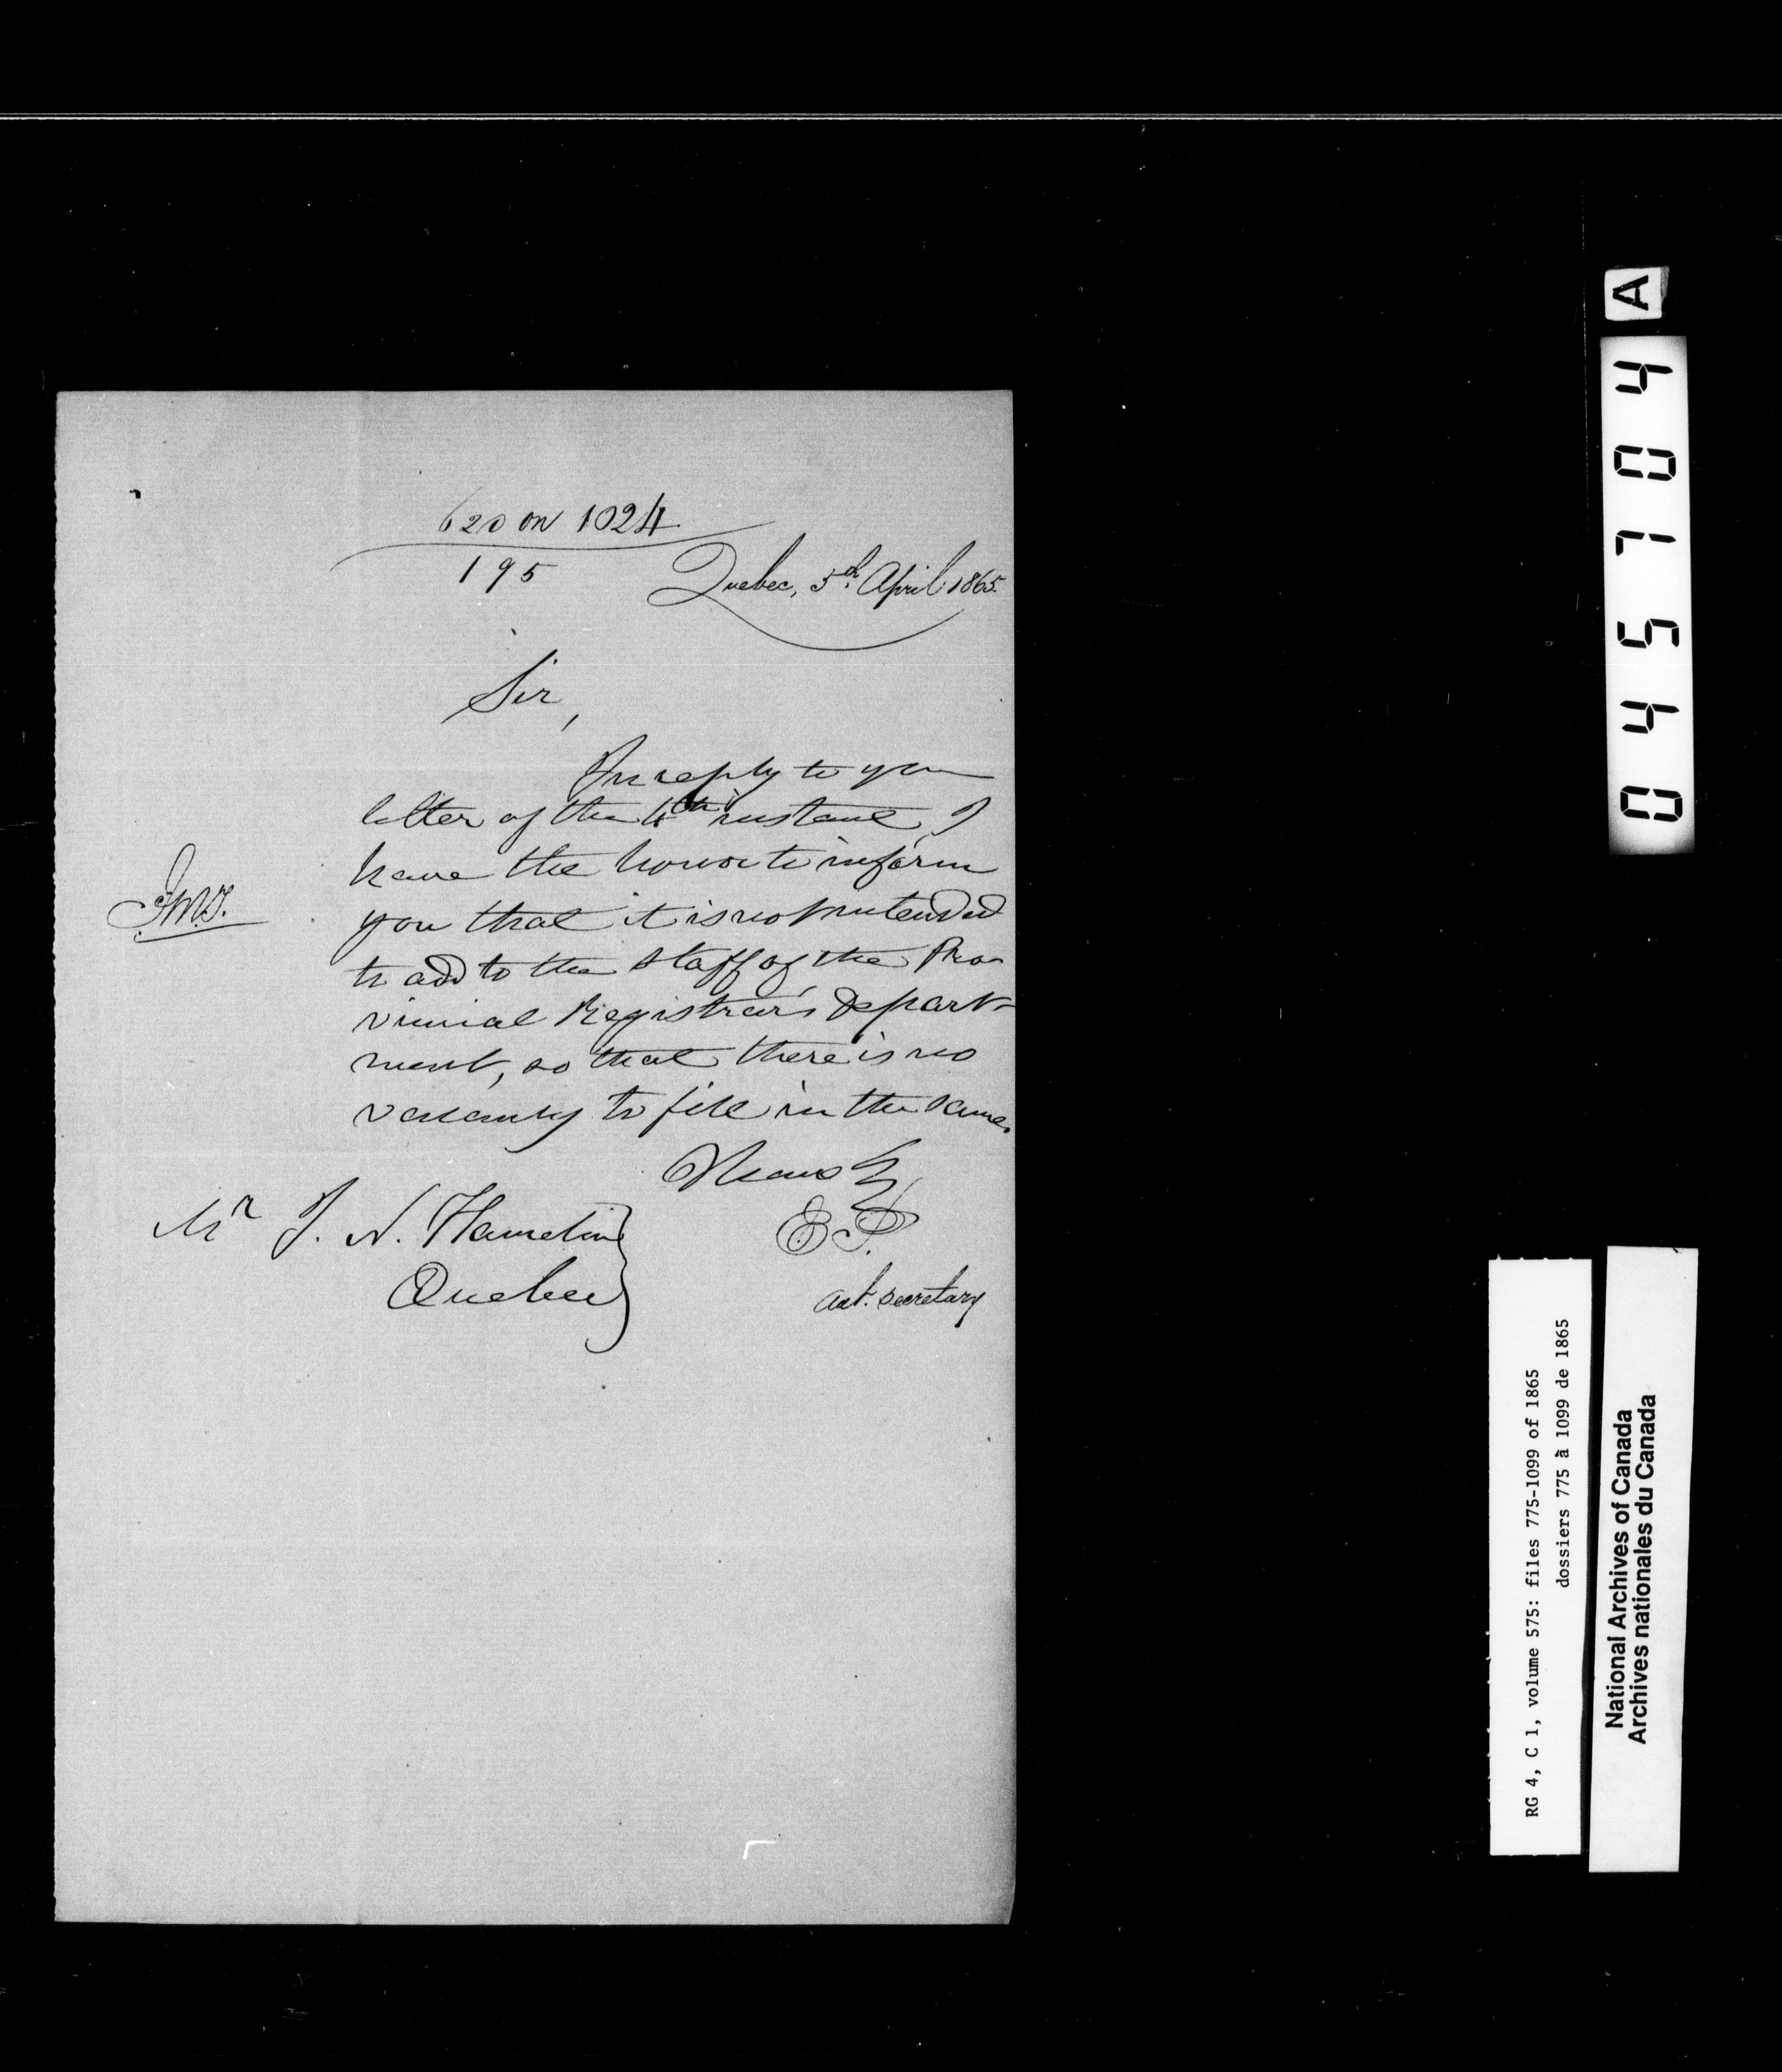 620 on 1024
195
Quebec, 5th April 1865.
Sir,
In reply to your
letter of the 4th instant, I
have the honor to inform
you that it is not intended
to add to the staff of the Pro-
vincial Registrar's Depart-
ment, so that there is no
vacancy to fill in the same.
I have &
E.P.
Ast. Secretary
Mr J. N. Hamelin
Quebec
A
045704
RG 4, C 1, volume 575: files 775-1099 of 1865
dossiers 775 à 1099 de 1865
National Archives of Canada
Archives nationales du Canada